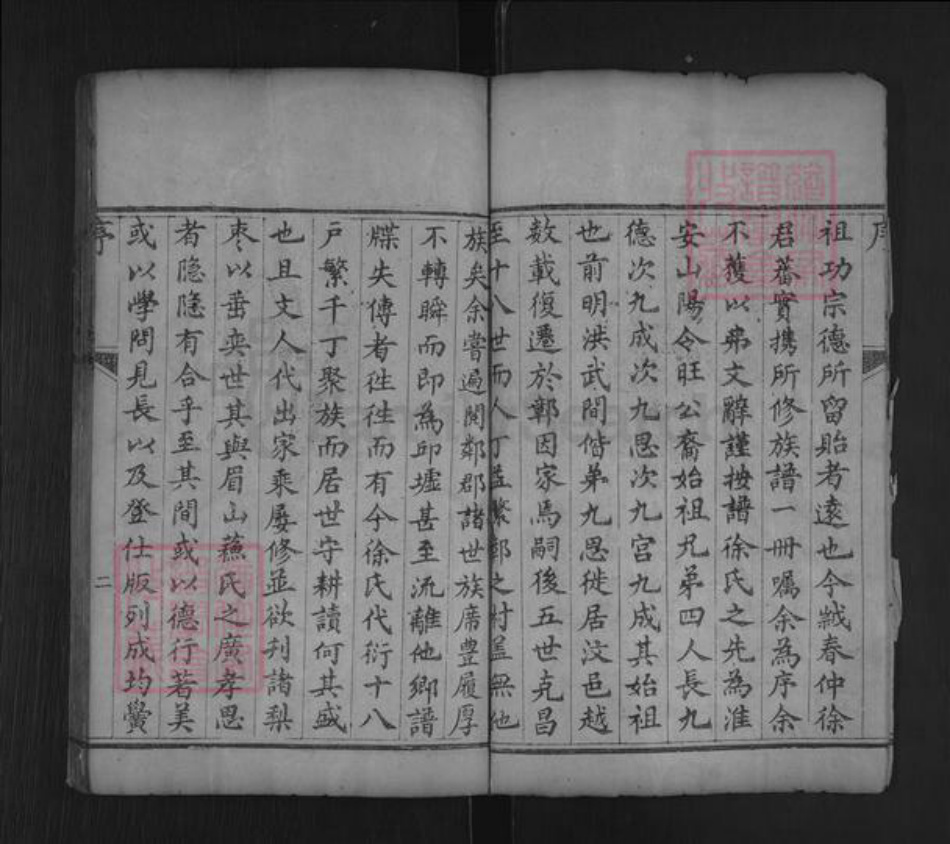 序
祖功宗德所留貽者遠也今歲春仲徐
君蕃實携所修族譜一冊囑余為序余
不獲以弗文辭謹按譜徐氏之先為淮
安山陽令旺公裔始祖兄弟四人長九
德次九成次九思次九宫九成其始祖
也前明洪武間偕弟九思徙居汶邑越
数載復遷於鄣因家焉嗣後五世克昌
至十八世而人丁益繁鄣之村盖無他
族矣余嘗遍閱鄰郡諸世族席豊履厚
不轉瞬而即為邱墟甚至流離他鄉譜
牒失傳者徃徃而有今徐氏代衍十八
户繁千丁聚族而居世守耕讀何其盛
也且文人代出家乘屡修並欲刋諸梨
枣以垂奕世其與眉山蘓氏之廣孝思
者隐隐有合乎至其間或以德行著美
或以學問見長以及登仕版列成均黌
序
二